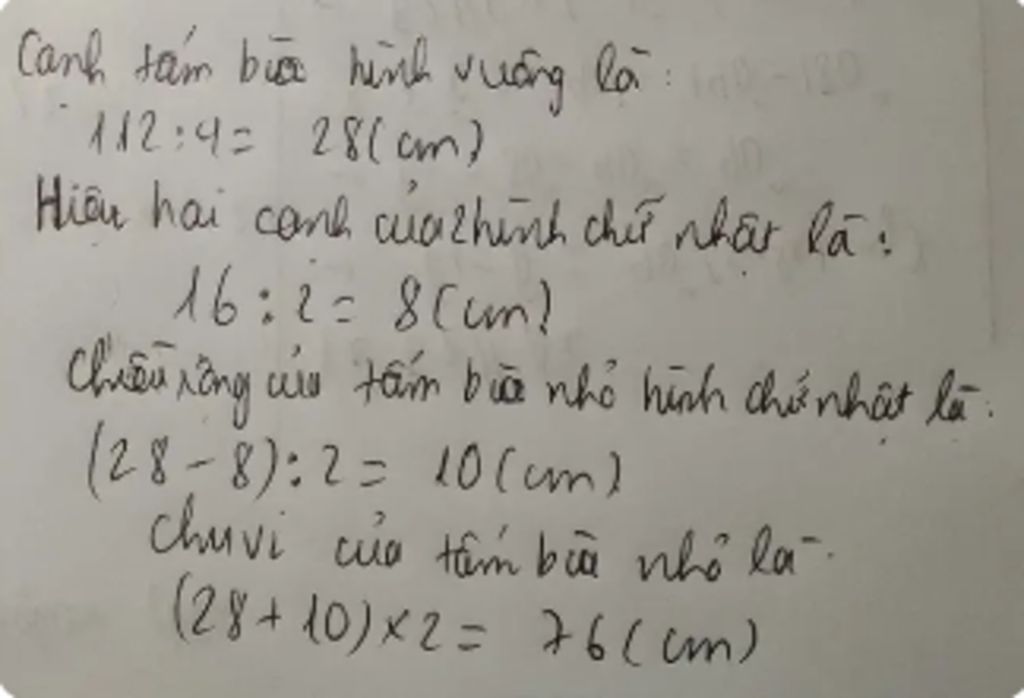 Cạnh tấm bìa hình vuông là:
112:4= 28(cm)
Hiệu hai cạnh của 2 hình chữ nhật là:
16:2= 8(cm)
Chiều rộng của tấm bìa nhỏ hình chữ nhật là:
(28-8):2= 10(cm)
Chu vi của tấm bìa nhỏ là
(28+10)×2= 76(cm)